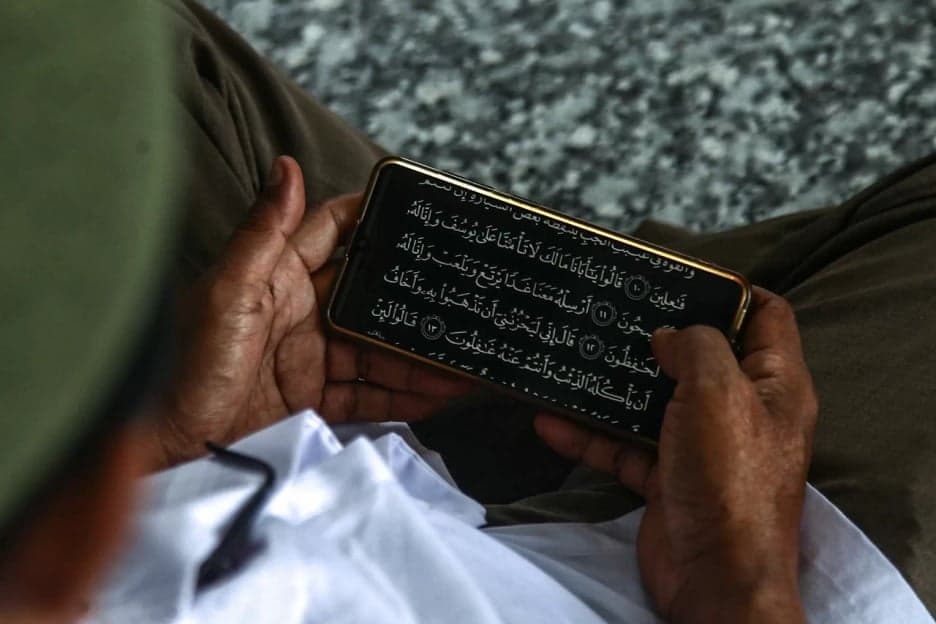 وَأَلْقُوهُ فِي غَيَٰبَتِ الْجُبِّ يَلْتَقِطْهُ بَعْضُ السَّيَّارَةِ إِن كُنتُمْ
فَٰعِلِينَ ١٠ قَالُوا۟ يَٰٓأَبَانَا مَالَكَ لَا تَأْمَ۫نَّا عَلَىٰ يُوسُفَ وَإِنَّا لَهُۥ
حُونَ ١١ أَرْسِلْهُ مَعَنَا غَدًا يَرْتَعْ وَيَلْعَبْ وَإِنَّا لَهُۥ
لَحَٰفِظُونَ ١٢ قَالَ إِنِّي لَيَحْزُنُنِيٓ أَن تَذْهَبُوا۟ بِهِۦ وَأَخَافُ
أَن يَأْكُلَهُ الذِّئْبُ وَأَنتُمْ عَنْهُ غَٰفِلُونَ ١٣ قَالُوا۟ لَئِنْ